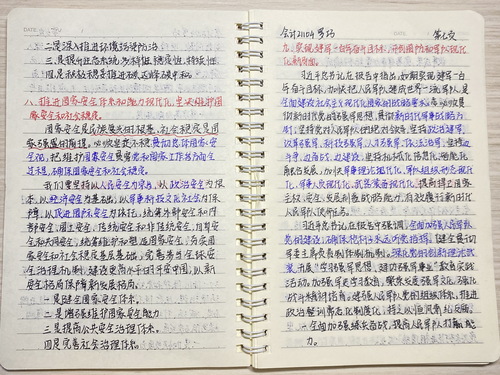 二是深入推进环境污染防治
三是提升生态系统多样性稳定性,持续性
四是积极稳妥推进碳达峰碳中和。
八、推进国家安全体系和能力现代化,坚决维护国
家安全和社会稳定。
国家安全是民族复兴的根基,社会稳定是国
家强盛的前提。必须坚定不移贯彻总体国家安
全观,把维护国家安全贯穿党和国家工作各方面全
过程,确保国家安全和社会稳定。
我们要坚持以人民安全为宗旨,以政治安全为根
本,以经济安全为基础,以军事科技文化社会为保
障,以促进国际安全为依托,统筹外部安全和内
部安全,国土安全,传统安全和非传统安全,自身安
全和共同安全,统筹维护和塑造国家安全,夯实国
家安全和社会稳定基层基础,完善参与全球安
全治理机制,建设更高水平的平安中国,以新
安全格局保障新发展格局。
一是健全国家安全体系。
二是增强维护国家安全能力
三是提高公共安全治理水平。
四是完善社会治理体系。
DATE
会计2104
九、实现建军一百年奋斗目标,开创国防和军队现代
化新局面。
习近平总书记在报告中指出,如期实现建军一百
年奋斗目标,加快把人民军队建成世界一流军队,是
全面建设社会主义现代化国家的战略要求。必须贯
彻新时代党的强军思想,贯彻新时代军事战略方
针,坚持党对人民军队的绝对领导,坚持政治建军,
改革强军,科技强军,人才强军,依法治军,坚持边
斗争,边备战,边建设,坚持机械化信息化智能化
融合发展,加快军事理论现代化,军队组织形态现代
化,军事人员现代化,武器装备现代化,提高捍卫国家
主权,安全,发展利益战略能力,有效履行新时代
人民军队使命任务。
习近平总书记在报告中强调,全面加强人民军队
党的建设,确保枪杆子永远听党指挥。健全贯彻
军委主席负责制体制机制。深化党的创新理论武
装,开展“学习强军思想,建功强军事业”教育实践
活动。加强军史学习教育,繁荣发展强军文化,强化
战斗精神培育。建强人民军队党的组织体系,推进
政治整训常态化制度化,持之以恒正风肃纪反腐。
一全面加强练兵备战,提高人民军队打赢能
力。